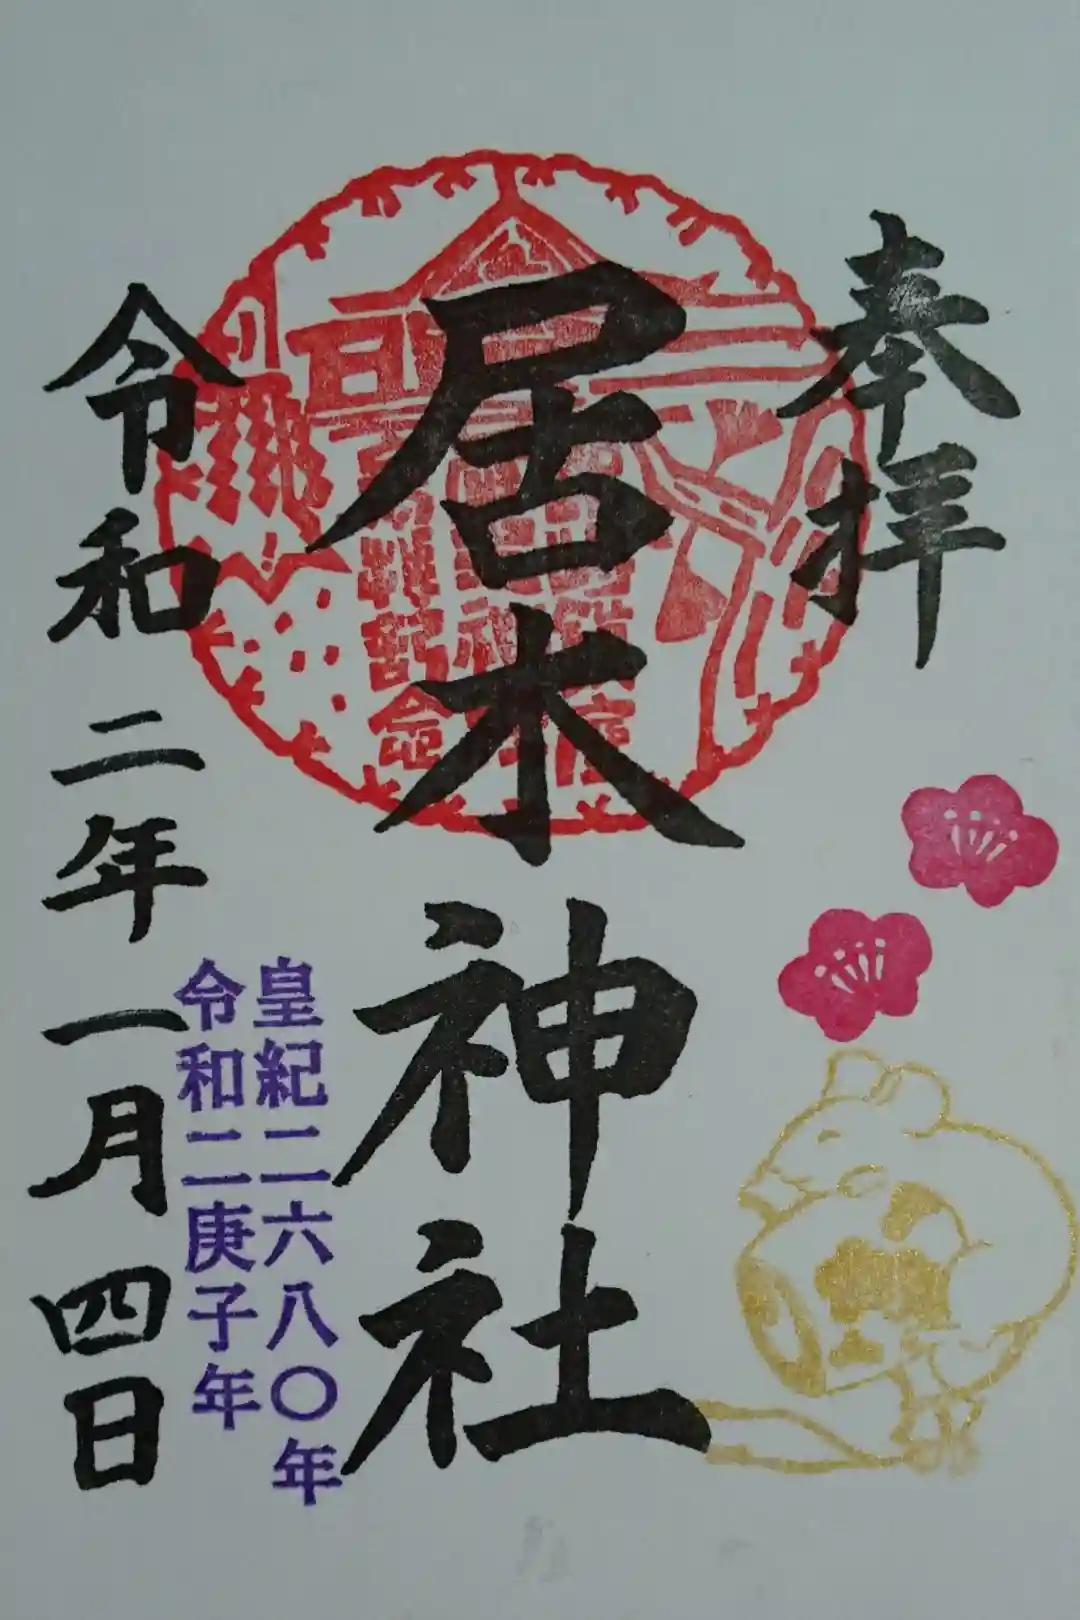 奉拝
居木神社
皇紀二六八〇年
令和二庚子年
令和二年一月四日